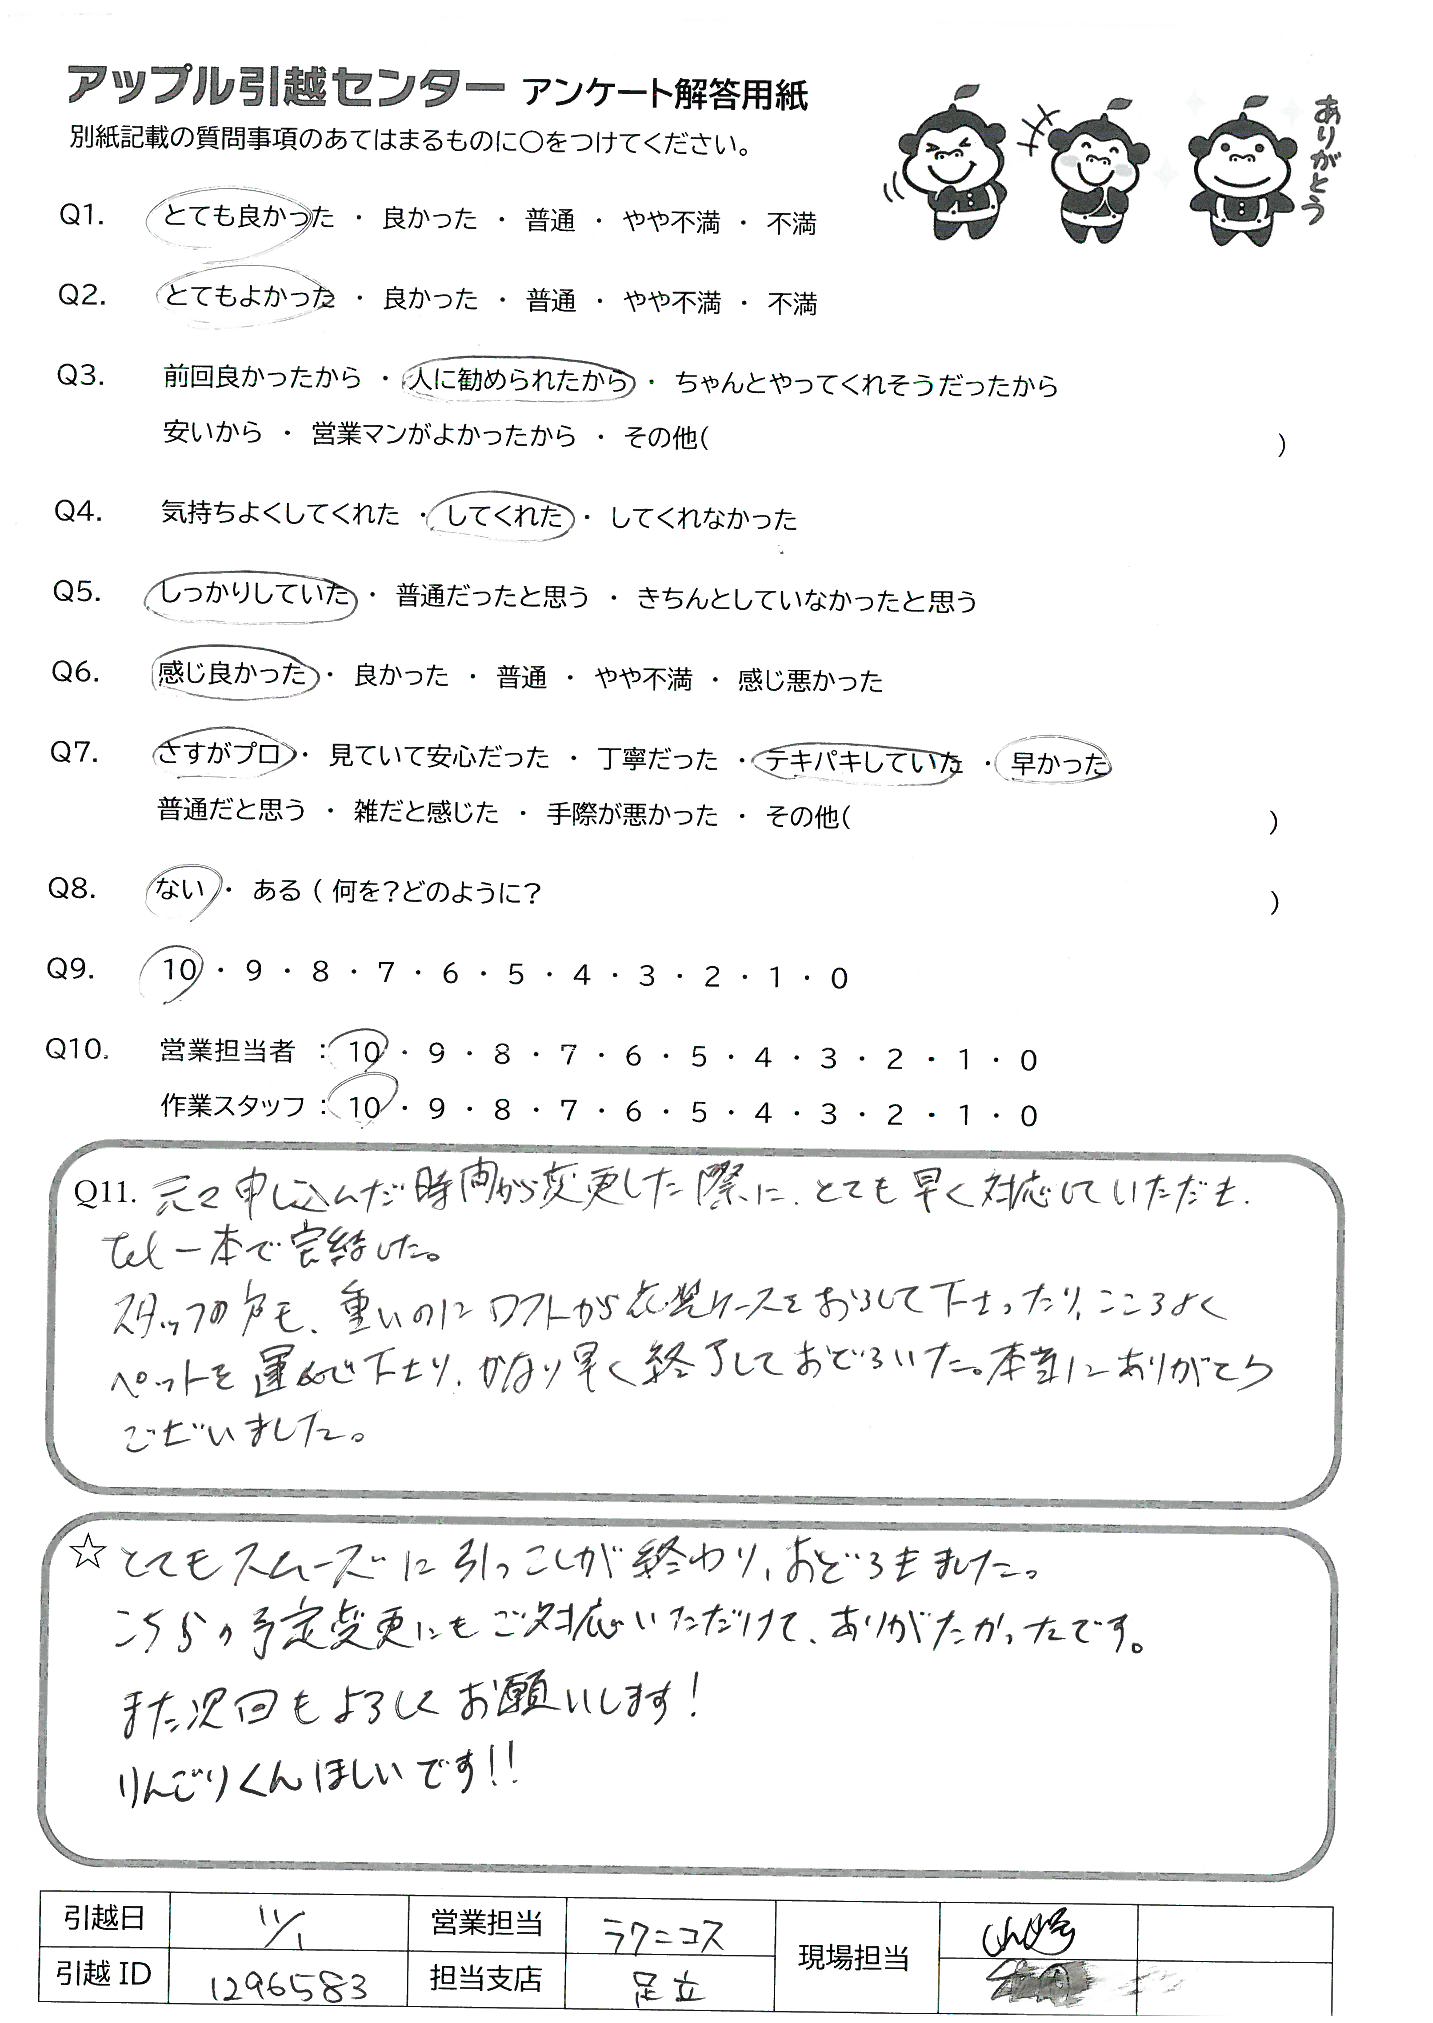 アップル引越センター アンケート解答用紙
別紙記載の質問事項のあてはまるものに○をつけてください。
ありがとう
Q1. とても良かった ・ 良かった ・ 普通 ・ やや不満 ・ 不満
Q2. とてもよかった ・ 良かった ・ 普通 ・ やや不満 ・ 不満
Q3. 前回良かったから ・ 人に勧められたから ・ ちゃんとやってくれそうだったから
安いから ・ 営業マンがよかったから ・ その他( )
Q4. 気持ちよくしてくれた ・ してくれた ・ してくれなかった
Q5. しっかりしていた ・ 普通だったと思う ・ きちんとしていなかったと思う
Q6. 感じ良かった ・ 良かった ・ 普通 ・ やや不満 ・ 感じ悪かった
Q7. さすがプロ ・ 見ていて安心だった ・ 丁寧だった ・ テキパキしていた ・ 早かった
普通だと思う ・ 雑だと感じた ・ 手際が悪かった ・ その他( )
Q8. ない ・ ある ( 何を?どのように? )
Q9. 10 ・ 9 ・ 8 ・ 7 ・ 6 ・ 5 ・ 4 ・ 3 ・ 2 ・ 1 ・ 0
Q10. 営業担当者 : 10 ・ 9 ・ 8 ・ 7 ・ 6 ・ 5 ・ 4 ・ 3 ・ 2 ・ 1 ・ 0
作業スタッフ : 10 ・ 9 ・ 8 ・ 7 ・ 6 ・ 5 ・ 4 ・ 3 ・ 2 ・ 1 ・ 0
Q11. 元々申し込んだ時間から変更した際に、とても早く対応していただき、
tel一本で完結した。
スタッフの方も、重いのにロフトから衣装ケースをおろして下さったり、こころよく
ペットを運んで下さり、かなり早く終了しておどろいた。本当にありがとう
ございました。
☆ とてもスムーズに引っこしが終わり、おどろきました。
こちらの予定変更にもご対応いただけて、ありがたかったです。
また次回もよろしくお願いします!
りんごりくんほしいです!!
引越日 11/1 営業担当 ラクニコス 現場担当
引越 ID 1296583 担当支店 足立